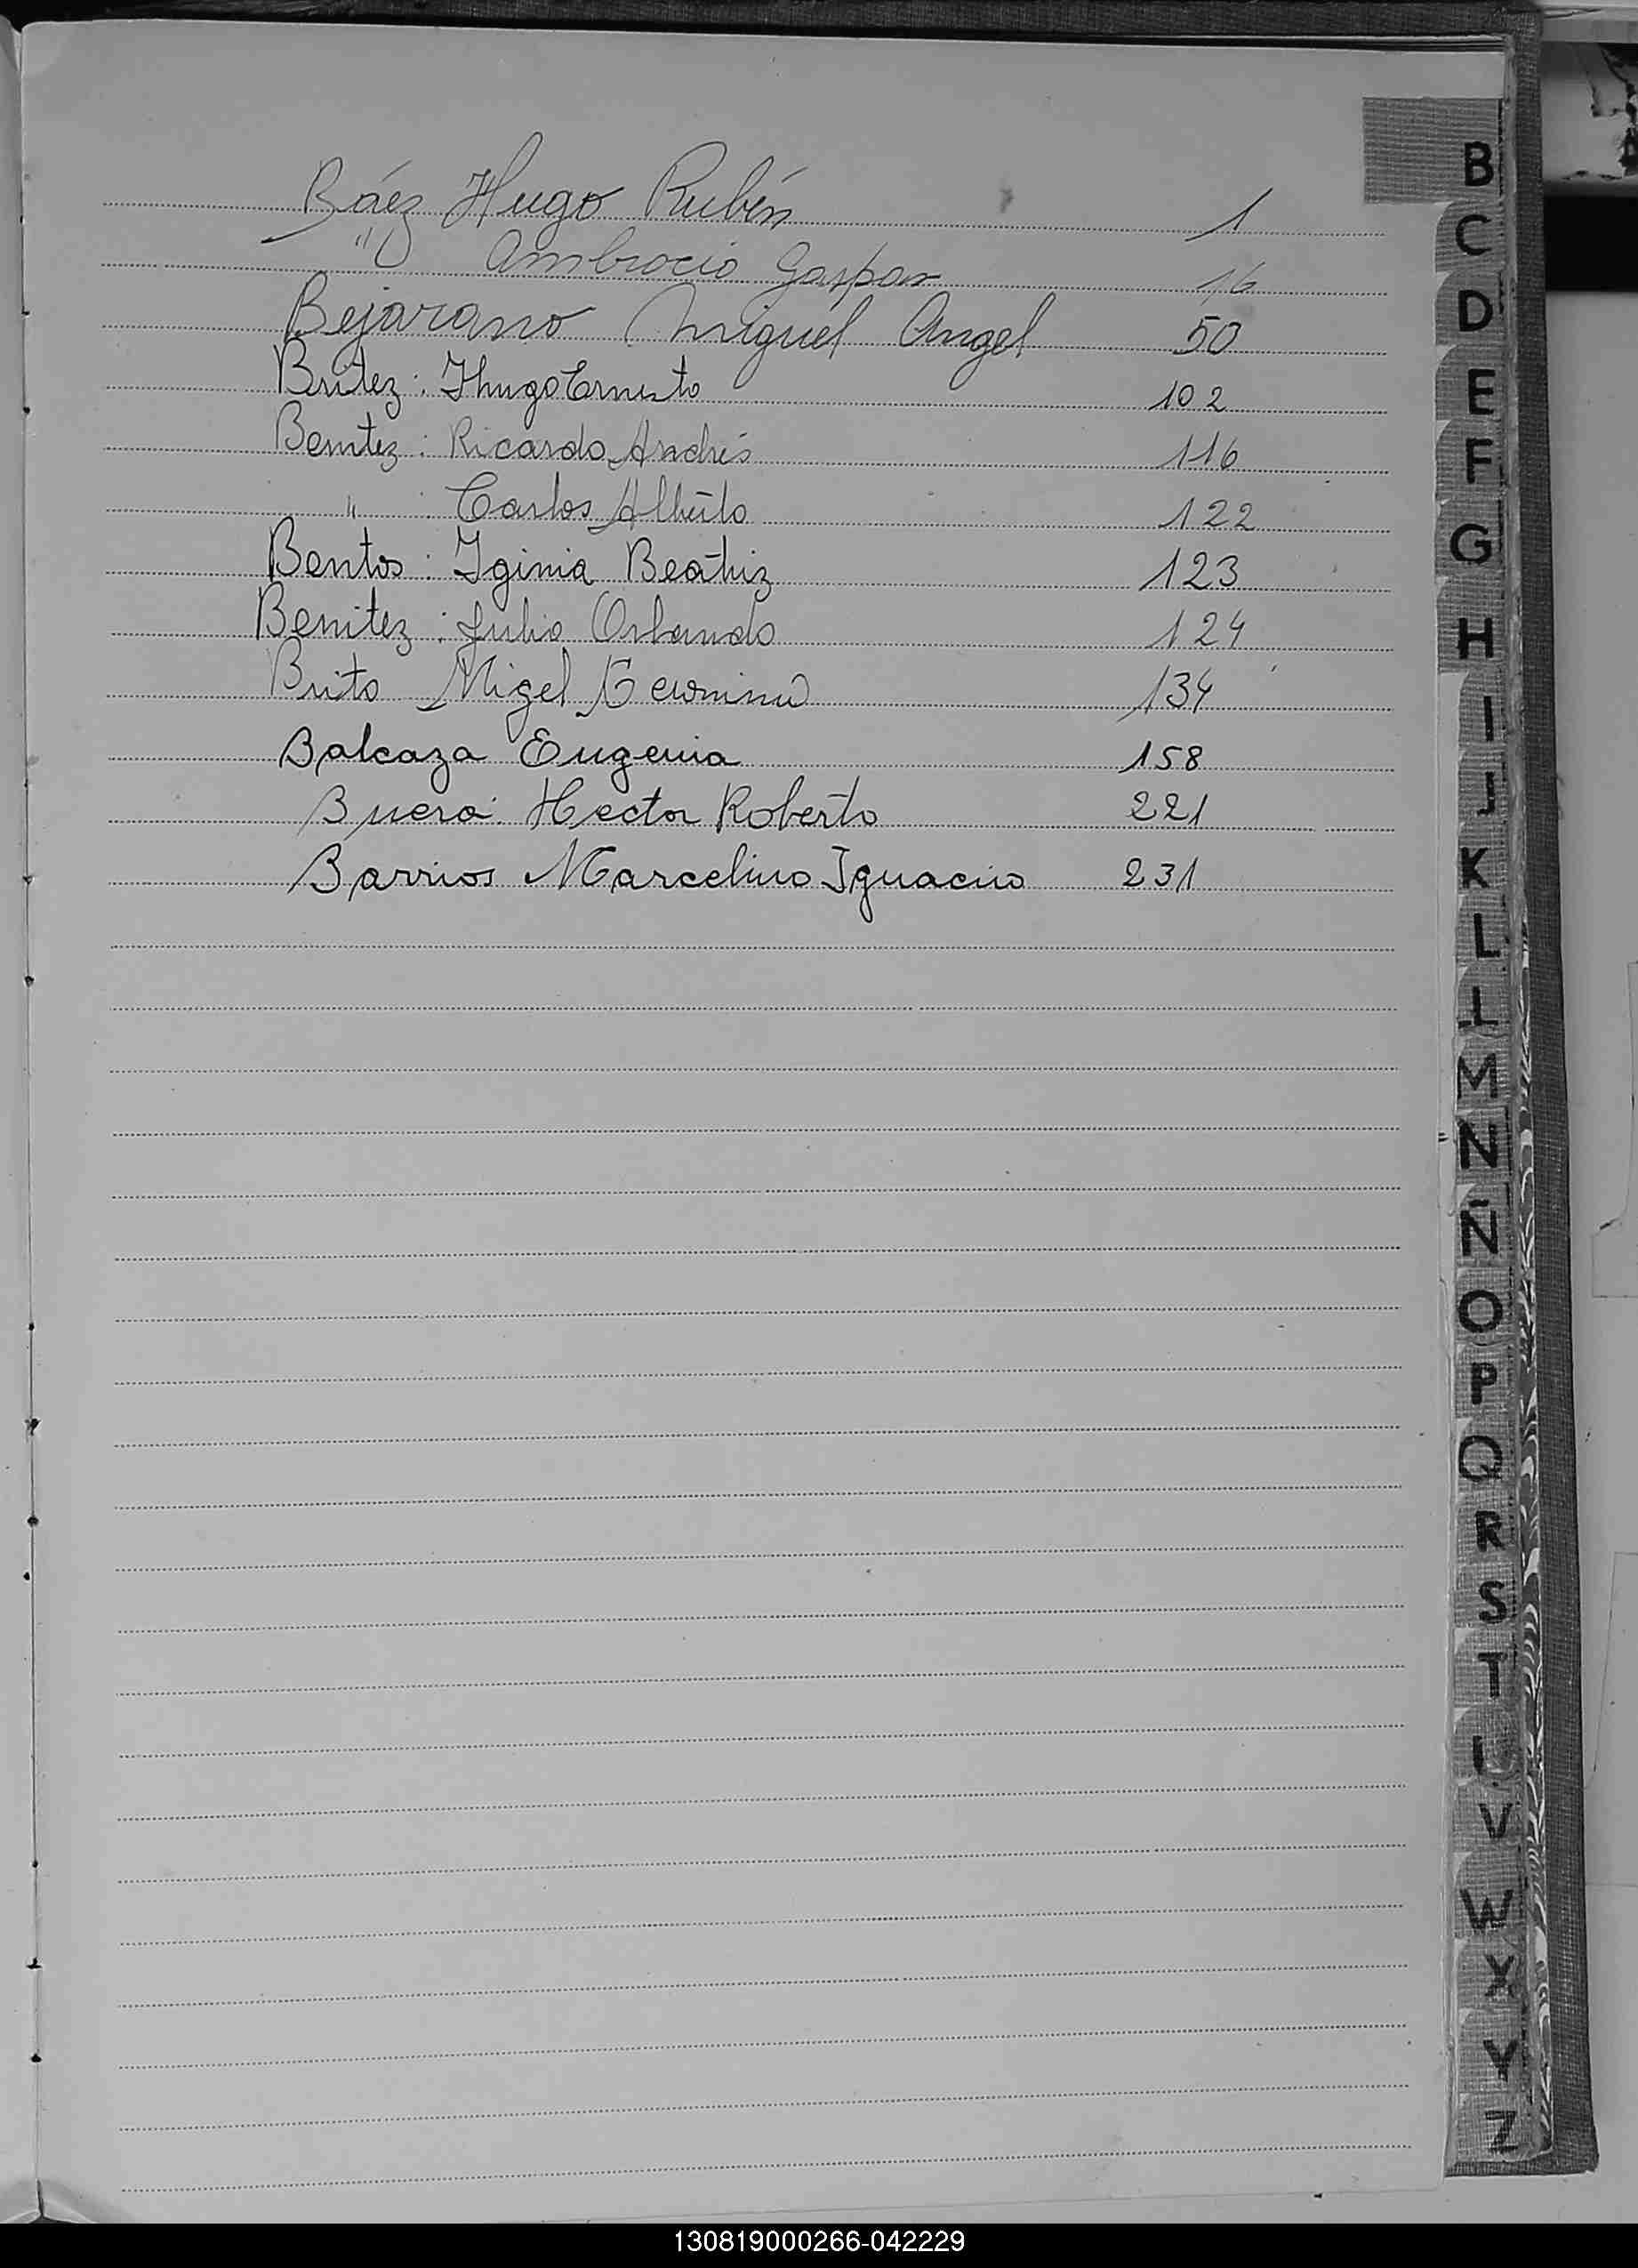 Báez Hugo Rubén 1
" Ambrocio Gaspar 16
Bejarano Miguel Angel 50
Britez: Hugo Ernesto 102
Benitez: Ricardo Andrés 116
" : Carlos Alberto 122
Bentos: Iginia Beatriz 123
Benitez: Julio Orlando 124
Brito Migel 134
Balcaza Eugenia 158
Buera: Hector Roberto 221
Barrios Marcelino Ignacio 231
B
C
D
E
F
G
H
I
J
K
L
M
N
Ñ
O
P
Q
R
S
T
V
W
X
Y
Z
130819000266-042229